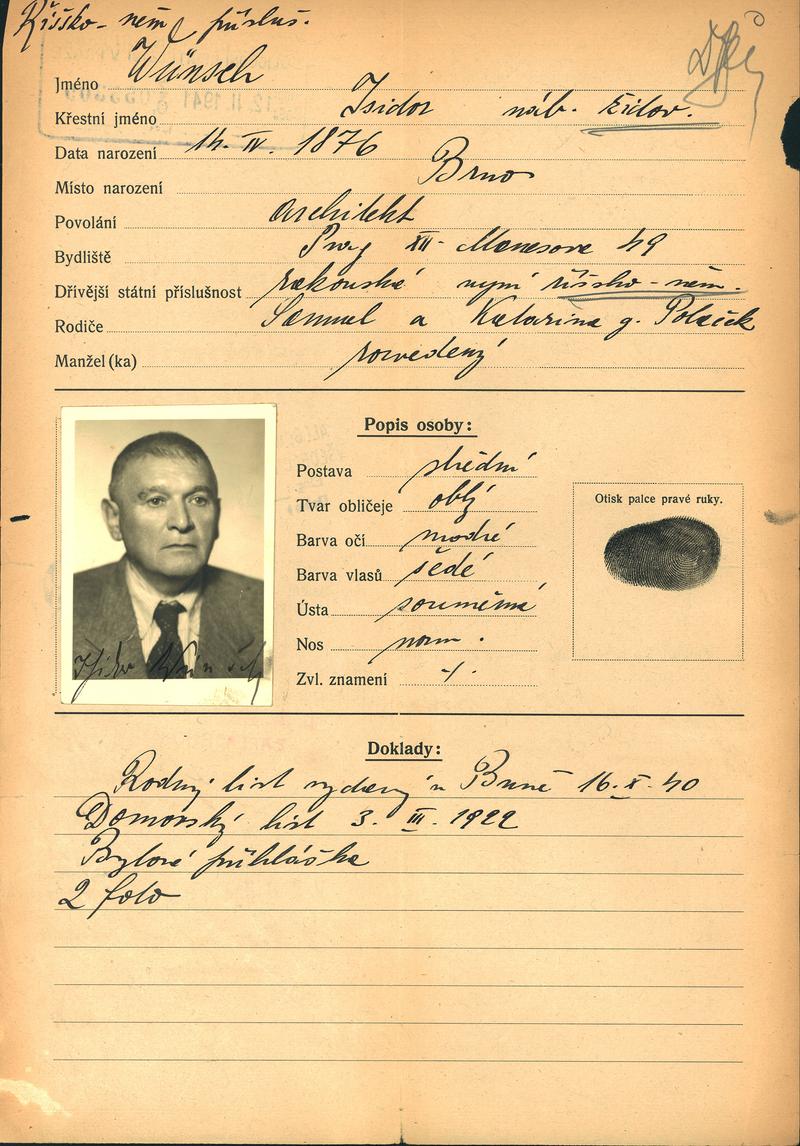 Říšsko-něm přísluš.
Jméno Wünsch
Křestní jméno Isidor náb. židov.
Data narození 14. IV. 1876
Místo narození Brno
Povolání architekt
Bydliště Prag XII - Manesova 49
Dřívější státní příslušnost rakouská nyní říšsko-něm.
Rodiče Samuel a Katarina g. Polaček
Manžel(ka) rozvedený
Popis osoby:
Postava střední
Tvar obličeje oblý
Barva očí modré
Barva vlasů šedé
Ústa souměrná
Nos norm.
Zvl. znamení -/-
Otisk palce pravé ruky.
Isidor Wünsch
Doklady:
Rodný list vydaný v Brně 16. X. 40
Domovský list 3. III. 1922
Bytové přihláška
2 foto